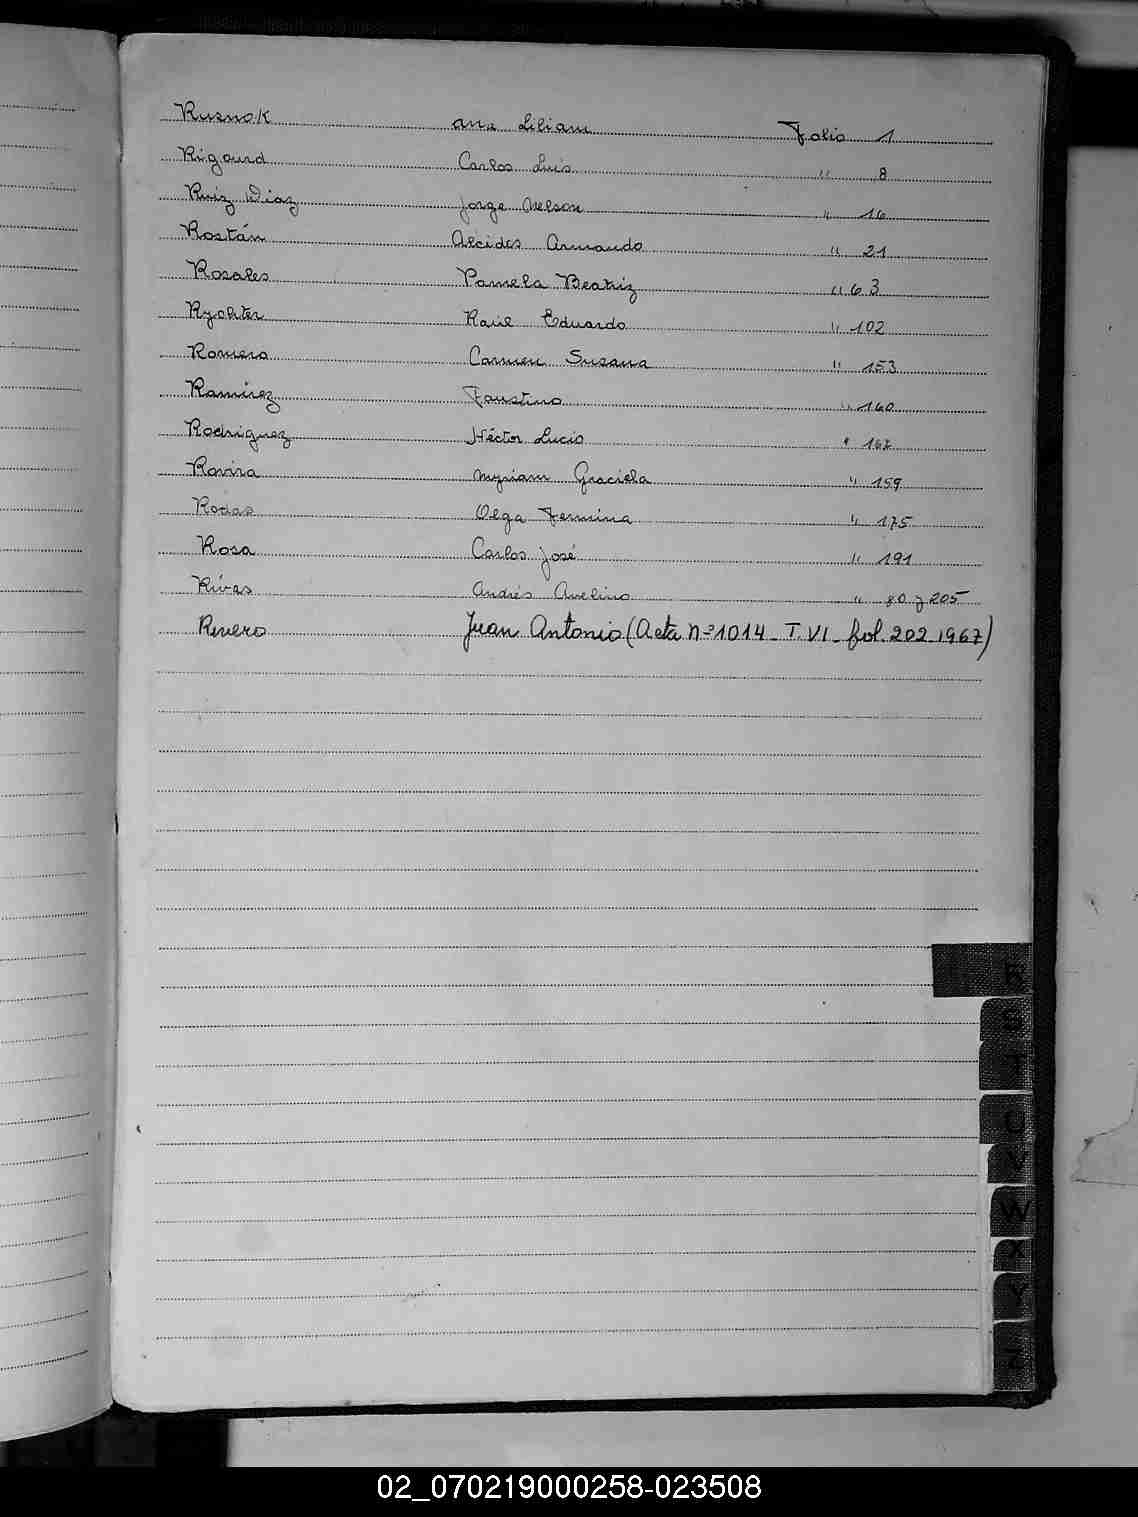 Rusnok Ana Liliam Folio 1
Rigourd Carlos Luis " 8
Ruiz Diaz Jorge Nelson " 16
Rostán Alcides Armando " 21
Rosales Pamela Beatriz " 63
Rychter Raúl Eduardo " 102
Romero Carmen Susana " 153
Ramírez Faustino " 160
Rodriguez Héctor Lucio " 167
Rovira Myriam Graciela " 159
Rodas Olga Fermina " 175
Rosa Carlos José " 191
Rivas Andrés Avelino " 80 y 205
Rivero Juan Antonio (Acta nº 1014 - T. VI - fol. 202 - 1967)
R
S
T
U
V
W
X
Y
Z
02_070219000258-023508